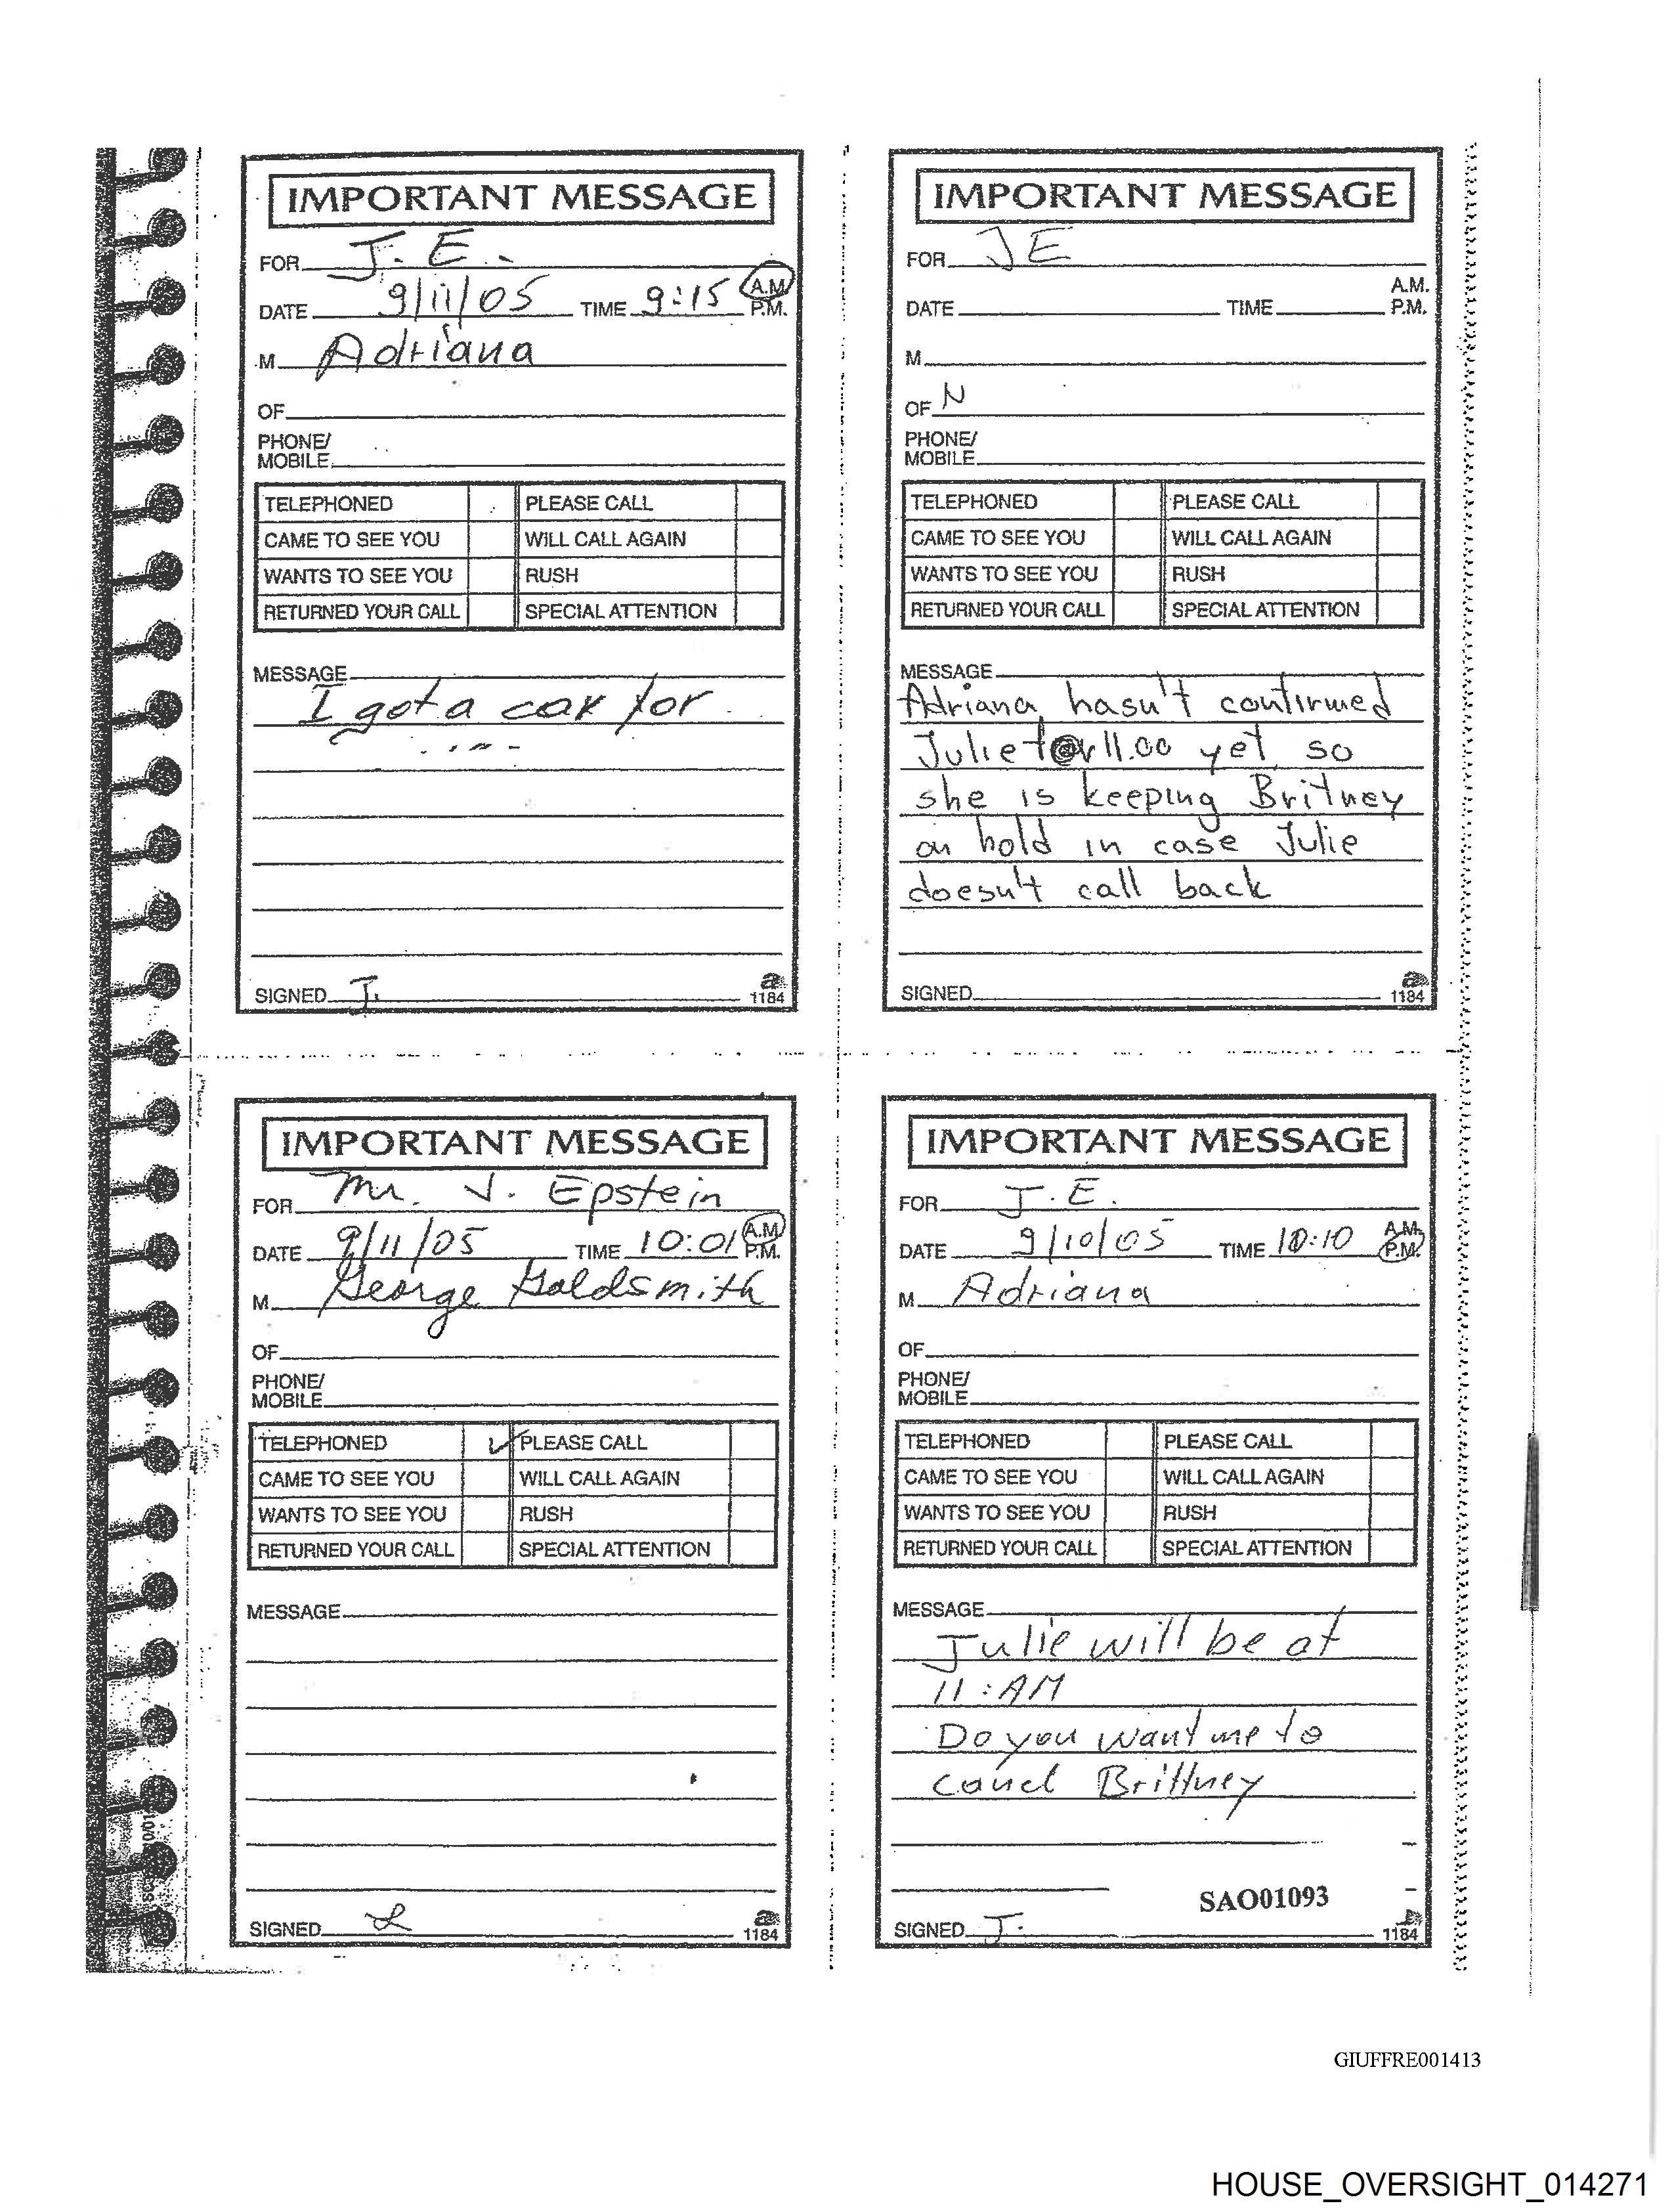 IMPORTANT MESSAGE
FOR J. E.
DATE 9/11/05 TIME 9:15 A.M.
P.M.
M Adriana
OF
PHONE/
MOBILE
TELEPHONED PLEASE CALL
CAME TO SEE YOU WILL CALL AGAIN
WANTS TO SEE YOU RUSH
RETURNED YOUR CALL SPECIAL ATTENTION
MESSAGE
I got a car for
.....
SIGNED J.
1184
IMPORTANT MESSAGE
FOR JE
A.M.
DATE TIME P.M.
M
OF N
PHONE/
MOBILE
TELEPHONED PLEASE CALL
CAME TO SEE YOU WILL CALL AGAIN
WANTS TO SEE YOU RUSH
RETURNED YOUR CALL SPECIAL ATTENTION
MESSAGE
Adriana hasn't confirmed
Julie for 11.00 yet, so
she is keeping Britney
on hold in case Julie
doesn't call back
SIGNED
1184
IMPORTANT MESSAGE
FOR Mr. J. Epstein
DATE 9/11/05 TIME 10:01 A.M.
P.M.
M George Goldsmith
OF
PHONE/
MOBILE
TELEPHONED ✓ PLEASE CALL
CAME TO SEE YOU WILL CALL AGAIN
WANTS TO SEE YOU RUSH
RETURNED YOUR CALL SPECIAL ATTENTION
MESSAGE
SIGNED
1184
IMPORTANT MESSAGE
FOR J. E.
DATE 9/10/05 TIME 10:10 A.M.
P.M.
M Adriana
OF
PHONE/
MOBILE
TELEPHONED PLEASE CALL
CAME TO SEE YOU WILL CALL AGAIN
WANTS TO SEE YOU RUSH
RETURNED YOUR CALL SPECIAL ATTENTION
MESSAGE
Julie will be at
11:AM
Do you want me to
cancl Brittney
SAO01093
SIGNED J.
1184
GIUFFRE001413
HOUSE_OVERSIGHT_014271